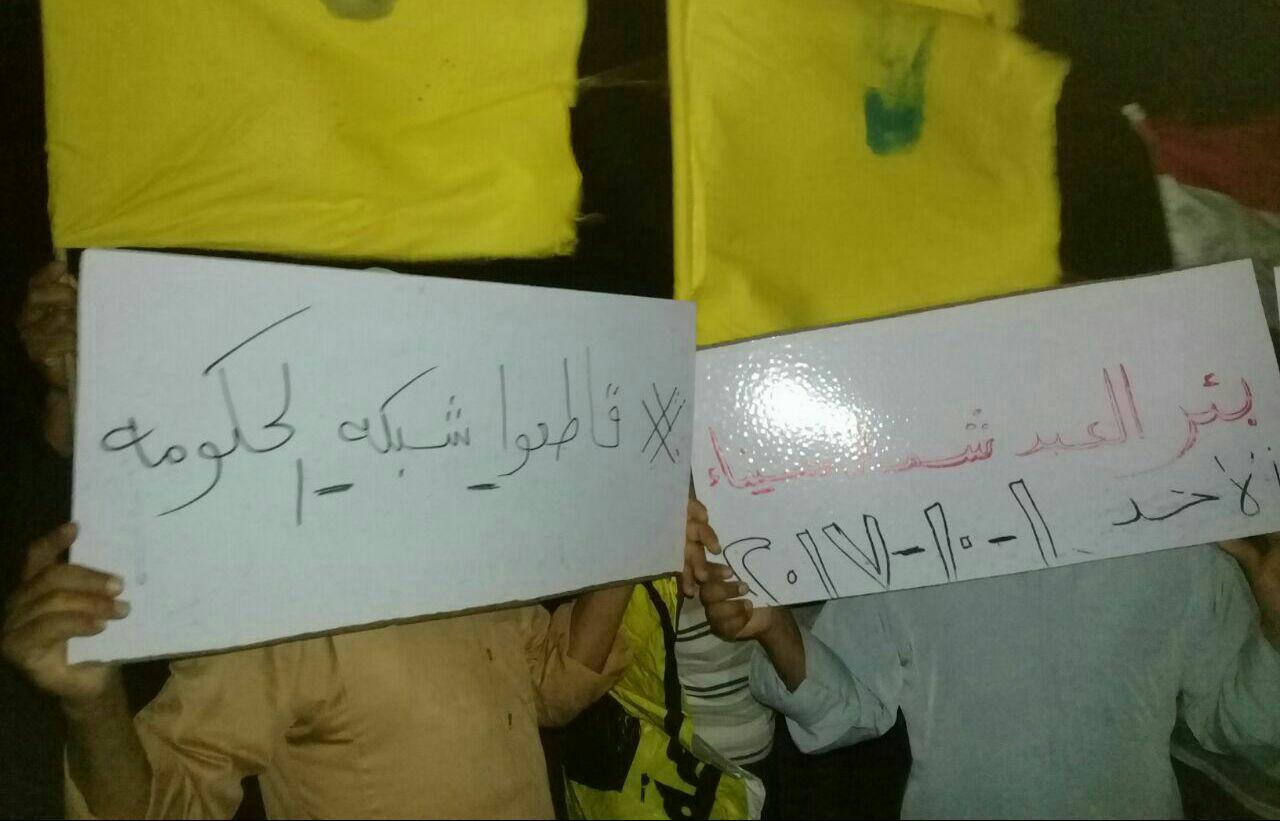 # قاطعوا شبكه الحكومه
بئر العبد شمال سيناء
الاحد ١-١٠-٢٠١٧